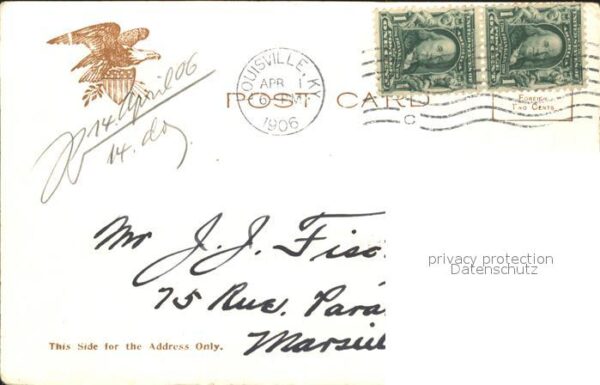 14. April 06
14. day
LOUISVILLE, KY.
APR 1
1906
POST CARD
C
1
1
FOREIGN
TWO CENTS
privacy protection
Datenschutz
Mr J. J. Fisc
75 Rue. Para
Marseil
This Side for the Address Only.